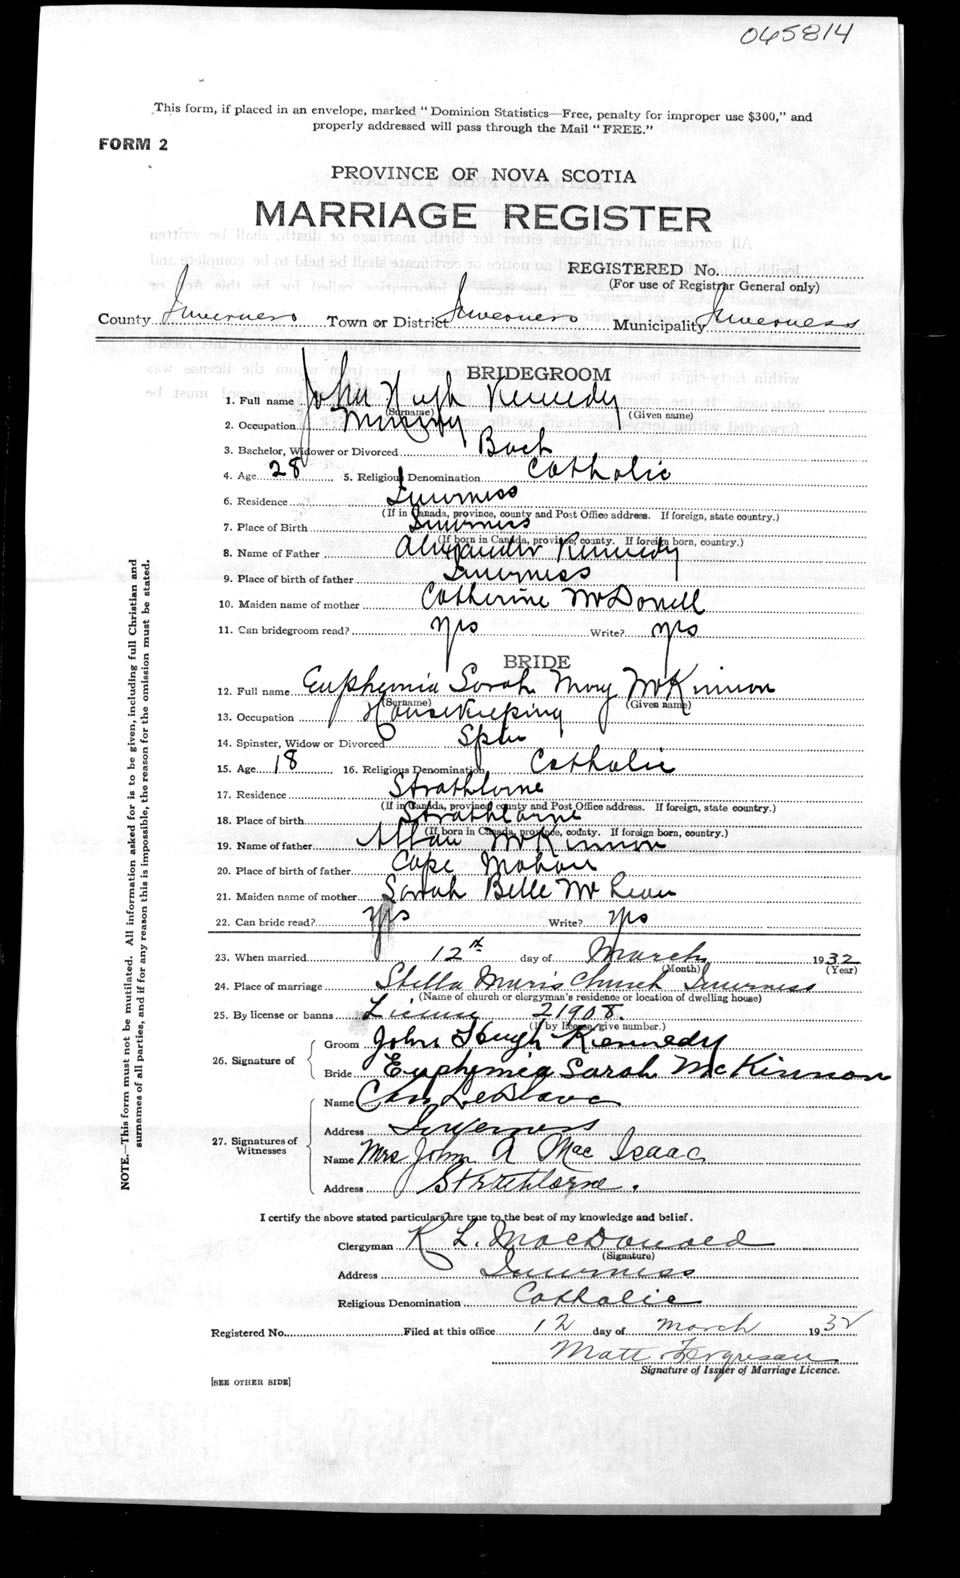 065814
This form, if placed in an envelope, marked "Dominion Statistics—Free, penalty for improper use $300," and
properly addressed will pass through the Mail "FREE."
FORM 2
PROVINCE OF NOVA SCOTIA
MARRIAGE REGISTER
REGISTERED No.
(For use of Registrar General only)
County Inverness Town or District Inverness Municipality Inverness
BRIDEGROOM
1. Full name John Hugh Kennedy
(Surname) (Given name)
2. Occupation Mining
3. Bachelor, Widower or Divorced Bach
4. Age 28 5. Religious Denomination Catholic
6. Residence Inverness
(If in Canada, province, county and Post Office address. If foreign, state country.)
7. Place of Birth Inverness
(If born in Canada, province, county. If foreign born, country.)
8. Name of Father Alexander Kennedy
9. Place of birth of father Inverness
10. Maiden name of mother Catherine McDonell
11. Can bridegroom read? yes Write? yes
BRIDE
12. Full name Euphemia Sarah Mary McKinnon
(Surname) (Given name)
13. Occupation Housekeeping
14. Spinster, Widow or Divorced Spin
15. Age 18 16. Religious Denomination Catholic
17. Residence Strathlorne
(If in Canada, province, county and Post Office address. If foreign, state country.)
18. Place of birth Strathlorne
(If born in Canada, province, county. If foreign born, country.)
19. Name of father Allan McKinnon
20. Place of birth of father Cape Mabou
21. Maiden name of mother Sarah Belle McLean
22. Can bride read? yes Write? yes
23. When married 12th day of March 1932
(Month) (Year)
24. Place of marriage Stella Maris Church Inverness
(Name of church or clergyman's residence or location of dwelling house)
25. By license or banns License 21908.
(If by license, give number.)
26. Signature of
Groom John Hugh Kennedy
Bride Euphemia Sarah McKinnon
27. Signatures of Witnesses
Name LeBlanc
Address Inverness
Name Mrs John A Mac Isaac
Address Strathlorne.
I certify the above stated particulars are true to the best of my knowledge and belief.
Clergyman R L. MacDonald
(Signature)
Address Inverness
Religious Denomination Catholic
Registered No. Filed at this office 12 day of March 1932
Matt Ferguson
Signature of Issuer of Marriage Licence.
[SEE OTHER SIDE]
NOTE.—This form must not be mutilated. All information asked for is to be given, including full Christian and
surnames of all parties, and if for any reason this is impossible, the reason for the omission must be stated.